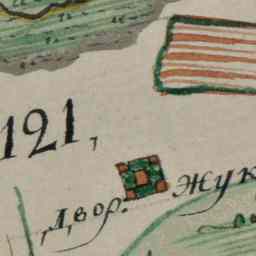 121,
двор. жук